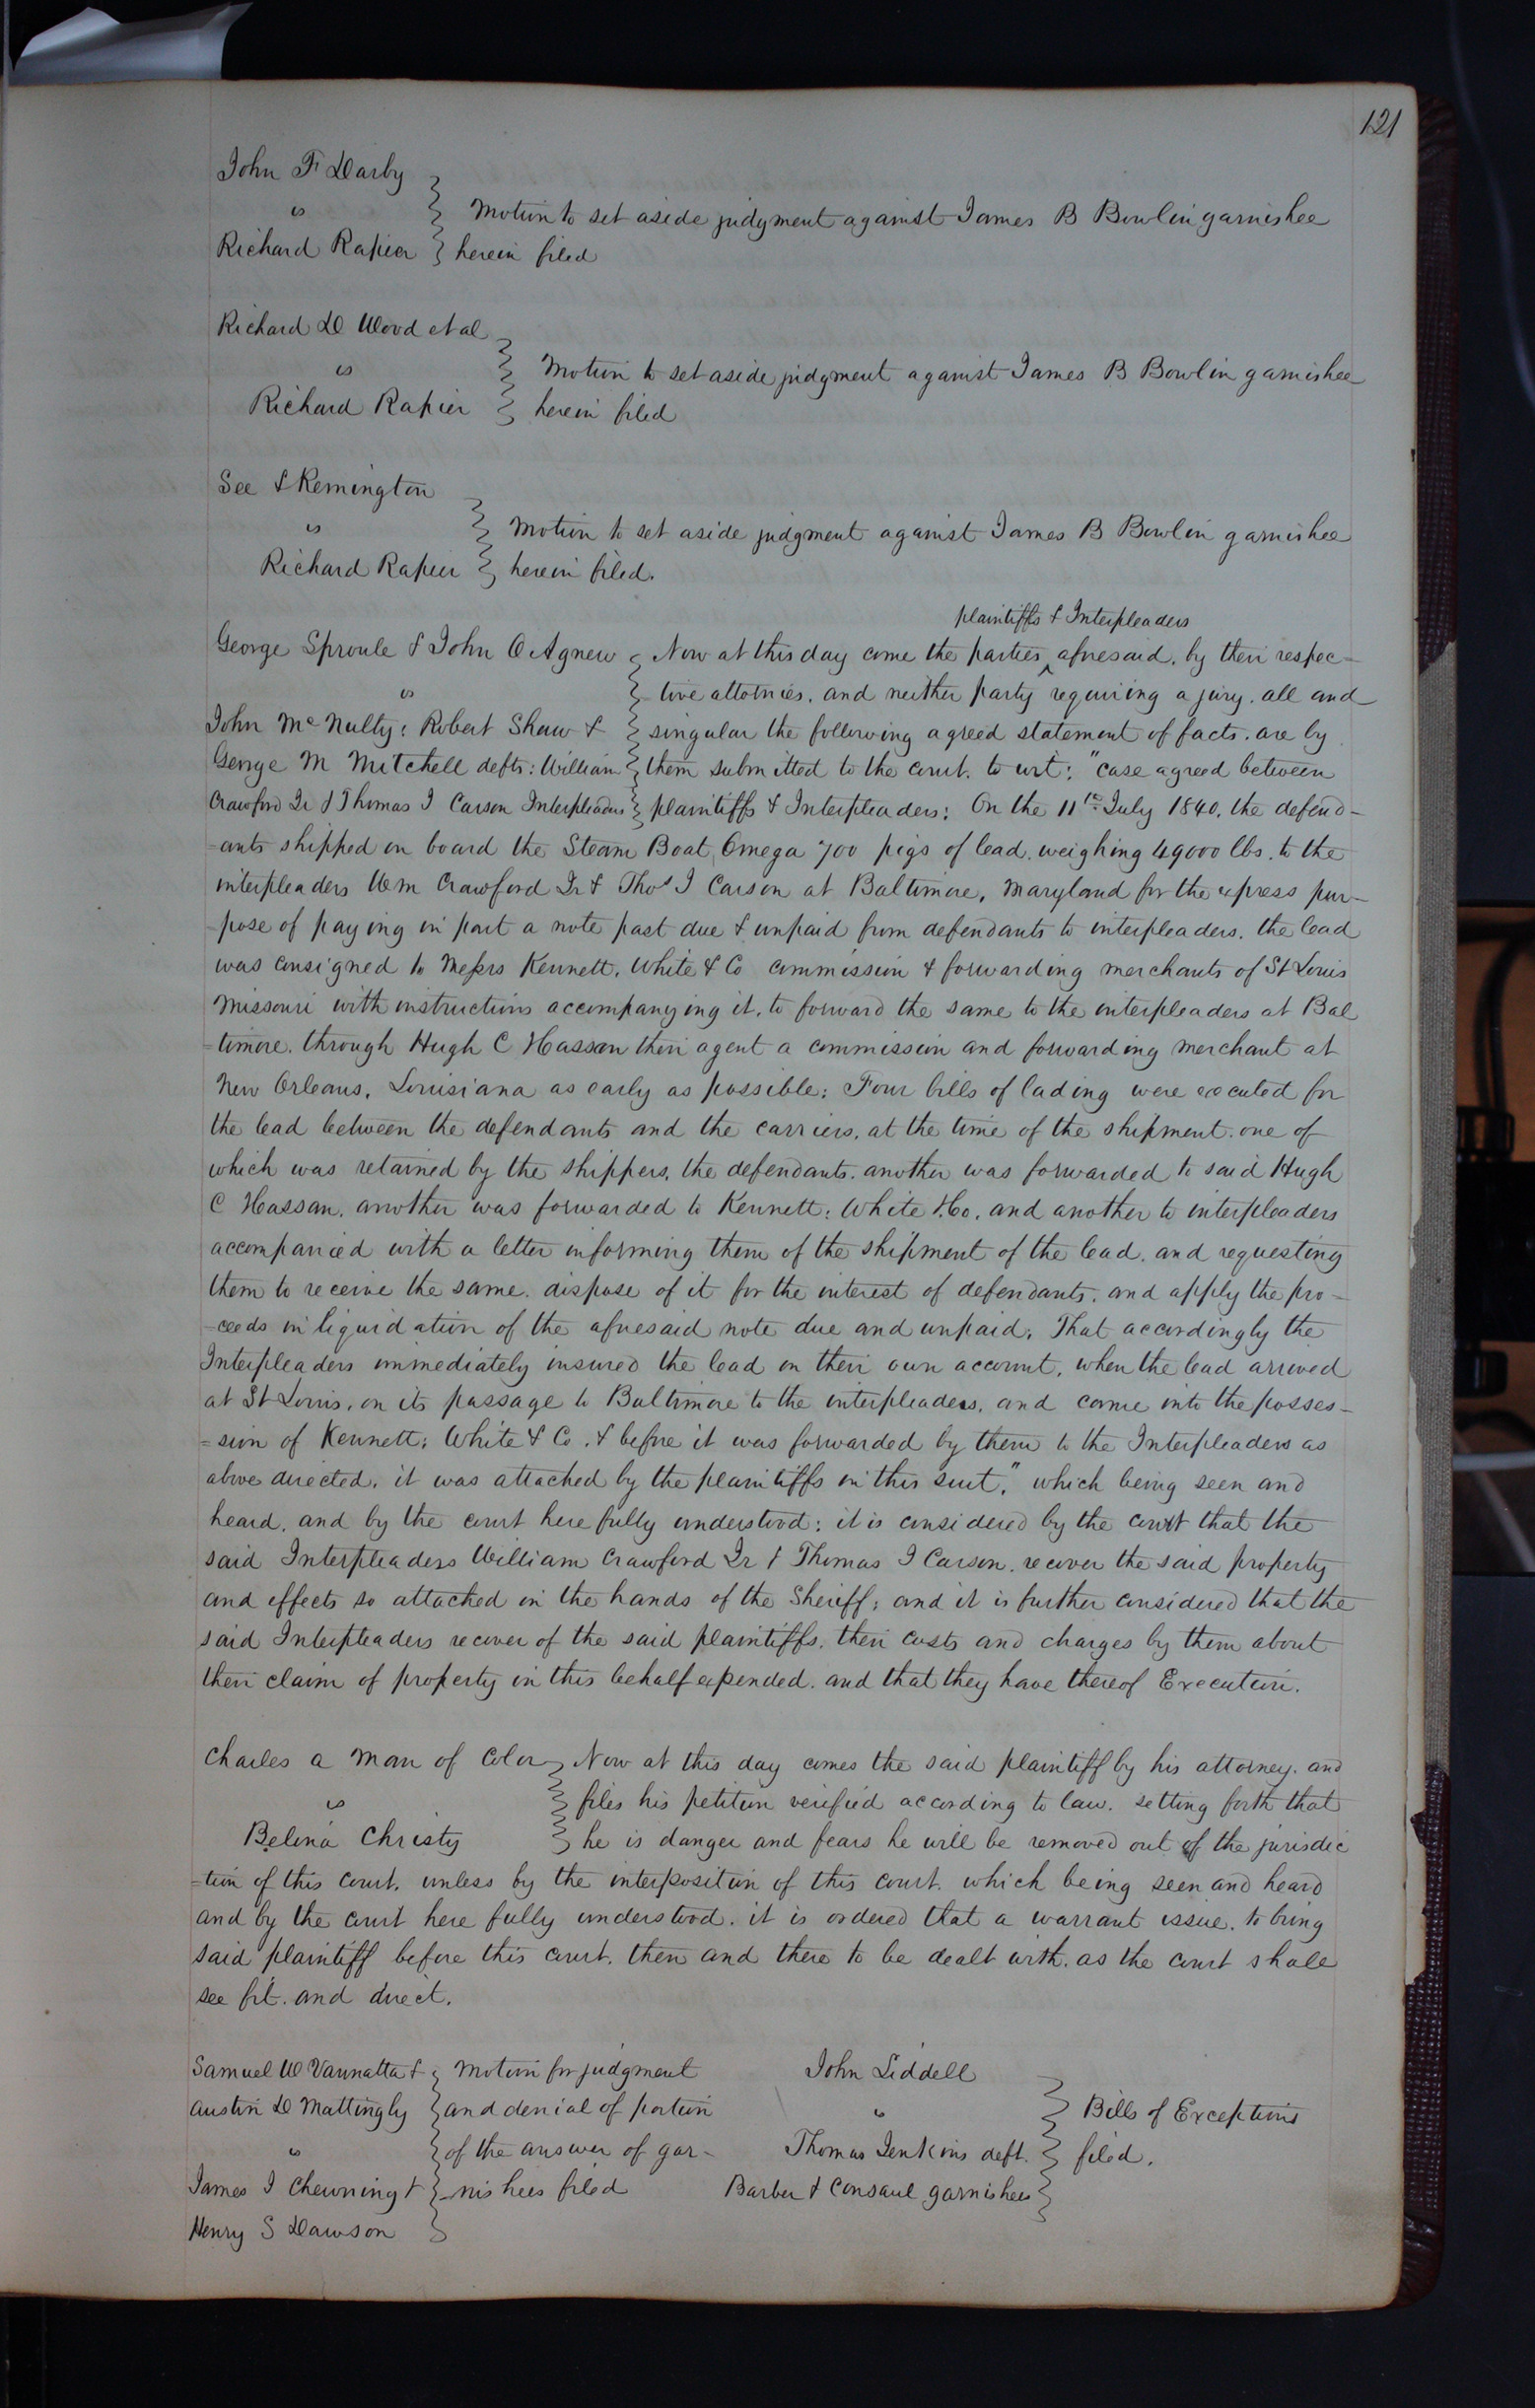 121
John F Darby
vs
Richard Rapier
Motion to set aside judgment against James B Bowlin garnishee
herein filed
Richard D Wood et al
vs
Richard Rapier
Motion to set aside judgment against James B Bowlin garnishee
herein filed
See & Remington
vs
Richard Rapier
Motion to set aside judgment against James B Bowlin garnishee
herein filed.
plaintiffs & Interpleaders
George Sproule & John O Agnew Now at this day come the parties ^ aforesaid, by their respec-
vs tive attornies, and neither party requiring a jury. all and
John McNulty: Robert Shaw & singular the following agreed statement of facts. are by
George M Mitchell defts: William them submitted to the court. to wit: "case agreed between
Crawford Jr & Thomas J Carson Interpleaders plaintiffs & Interpleaders: On the 11th July 1840, the defend-
-ants shipped on board the Steam Boat Omega 700 pigs of lead, weighing 49000 lbs. to the
interpleaders Wm Crawford Jr & Thos J Carson at Baltimore, Maryland for the express pur-
-pose of paying in part a note past due & unpaid from defendants to interpleaders. the lead
was consigned to Messrs Kennett, White & Co commission & forwarding merchants of St Louis
Missouri with instructions accompanying it, to forward the same to the interpleaders at Bal
=timore. through Hugh C Hassan their agent a commission and forwarding merchant at
New Orleans, Louisiana as early as possible: Four bills of lading were executed for
the lead between the defendants and the carriers, at the time of the shipment. one of
which was retained by the shippers, the defendants. another was forwarded to said Hugh
C Hassan. another was forwarded to Kennett: White & Co. and another to interpleaders
accompanied with a letter informing them of the shipment of the lead. and requesting
them to receive the same. dispose of it for the interest of defendants. and apply the pro-
-ceeds in liquidation of the aforesaid note due and unpaid. That accordingly the
Interpleaders immediately insured the lead on their own account. when the lead arrived
at St Louis, on its passage to Baltimore to the interpleaders, and came into the posses-
=sion of Kennett: White & Co. & before it was forwarded by them to the Interpleaders as
above directed, it was attached by the plaintiffs in this suit." which being seen and
heard. and by the court here fully understood: it is considered by the court that the
said Interpleaders William Crawford Jr & Thomas J Carson. recover the said property
and effects so attached in the hands of the Sheriff; and it is further considered that the
said Interpleaders recover of the said plaintiffs. their costs and charges by them about
their claim of property in this behalf expended. and that they have thereof Execution.
Charles a man of color Now at this day comes the said plaintiff by his attorney. and
vs files his petition verified according to law. setting forth that
Belina Christy he is danger and fears he will be removed out of the jurisdic
=tion of this court, unless by the interposition of this court. which being seen and heard
and by the court here fully understood. it is ordered that a warrant issue. to bring
said plaintiff before this court. then and there to be dealt with. as the court shall
see fit. and direct.
Samuel W Vannatta &
Austin D Mattingly
vs
James J Chewning &
Henry S Dawson
Motion for judgment
and denial of portion
of the answer of gar-
-nishees filed
John Liddell
vs
Thomas Jenkins deft.
Barber & Consaul garnishees
Bills of Exceptions
filed.